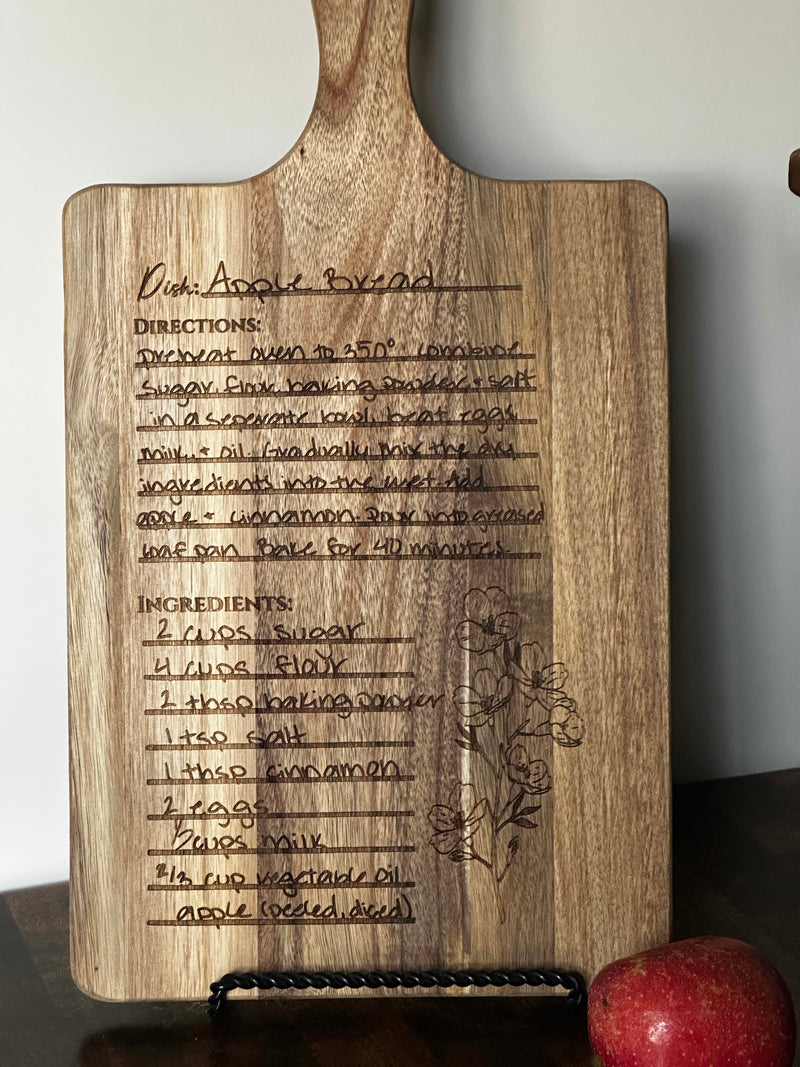 Dish: Apple Bread
DIRECTIONS:
Preheat oven to 350°. Combine
sugar, flour, baking powder + salt
in a seperate bowl, beat eggs,
milk, + oil. Gradually mix the dry
ingredients into the wet. Add
apple + cinnamon. Pour into greased
loaf pan. Bake for 40 minutes.
INGREDIENTS:
2 cups sugar
4 cups flour
2 tbsp baking powder
1 tsp salt
1 tbsp cinnamon
2 eggs
cups milk
2/3 cup vegetable oil
apple (peeled, diced)